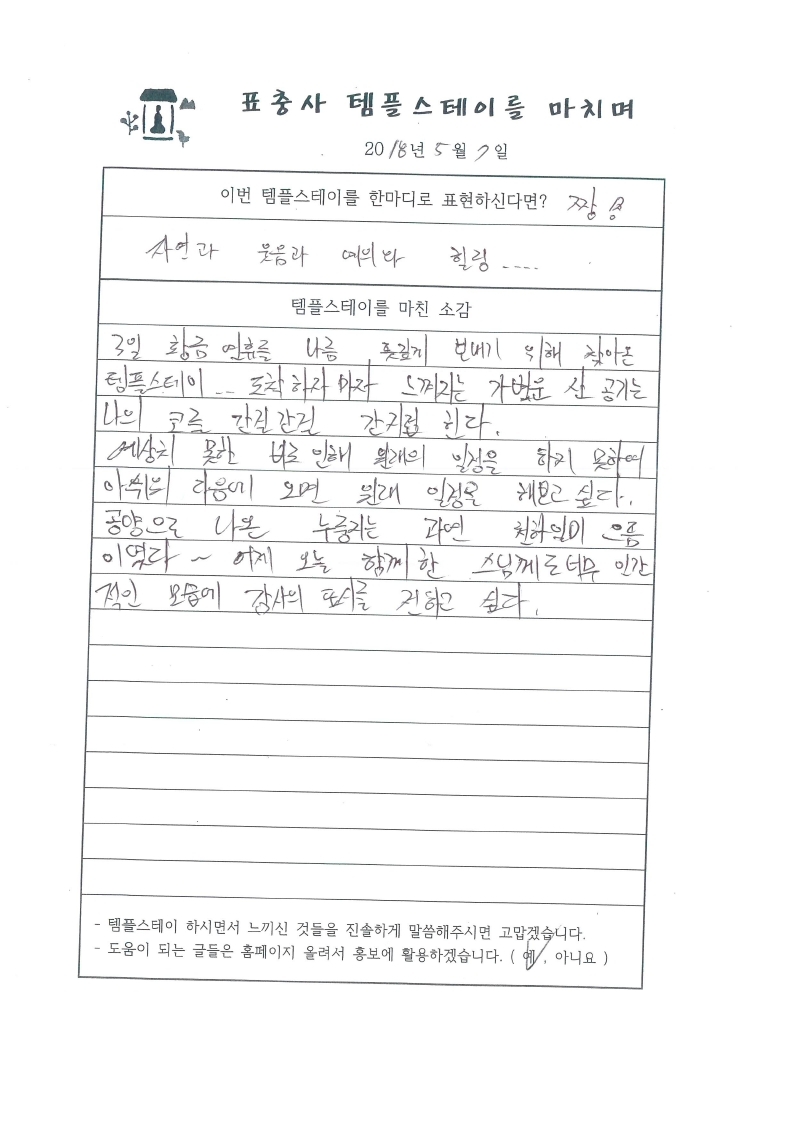 표충사 템플스테이를 마치며
2018년 5월 7일
이번 템플스테이를 한마디로 표현하신다면? 짱
자연과 웃음과 여의와 힐링....
템플스테이를 마친 소감
3일 황금 연휴를 나름 뜻깊게 보내기 위해 찾아온
템플스테이 ... 도착하자마자 느껴지는 가벼운 산 공기는
나의 코를 간질간질 간지럽힌다.
예상치 못한 비로 인해 원래의 일정을 하지 못하여
아쉬워 다음에 오면 원래 일정을 해보고 싶다.
공양으로 나온 누룽지는 과연 천하일미 으뜸
이였다 ~ 어제 오늘 함께 한 스님께도 너무 인간
적인 모습에 감사의 표시를 전하고 싶다.
- 템플스테이 하시면서 느끼신 것들을 진솔하게 말씀해주시면 고맙겠습니다.
- 도움이 되는 글들은 홈페이지 올려서 홍보에 활용하겠습니다. ( 예 , 아니요 )